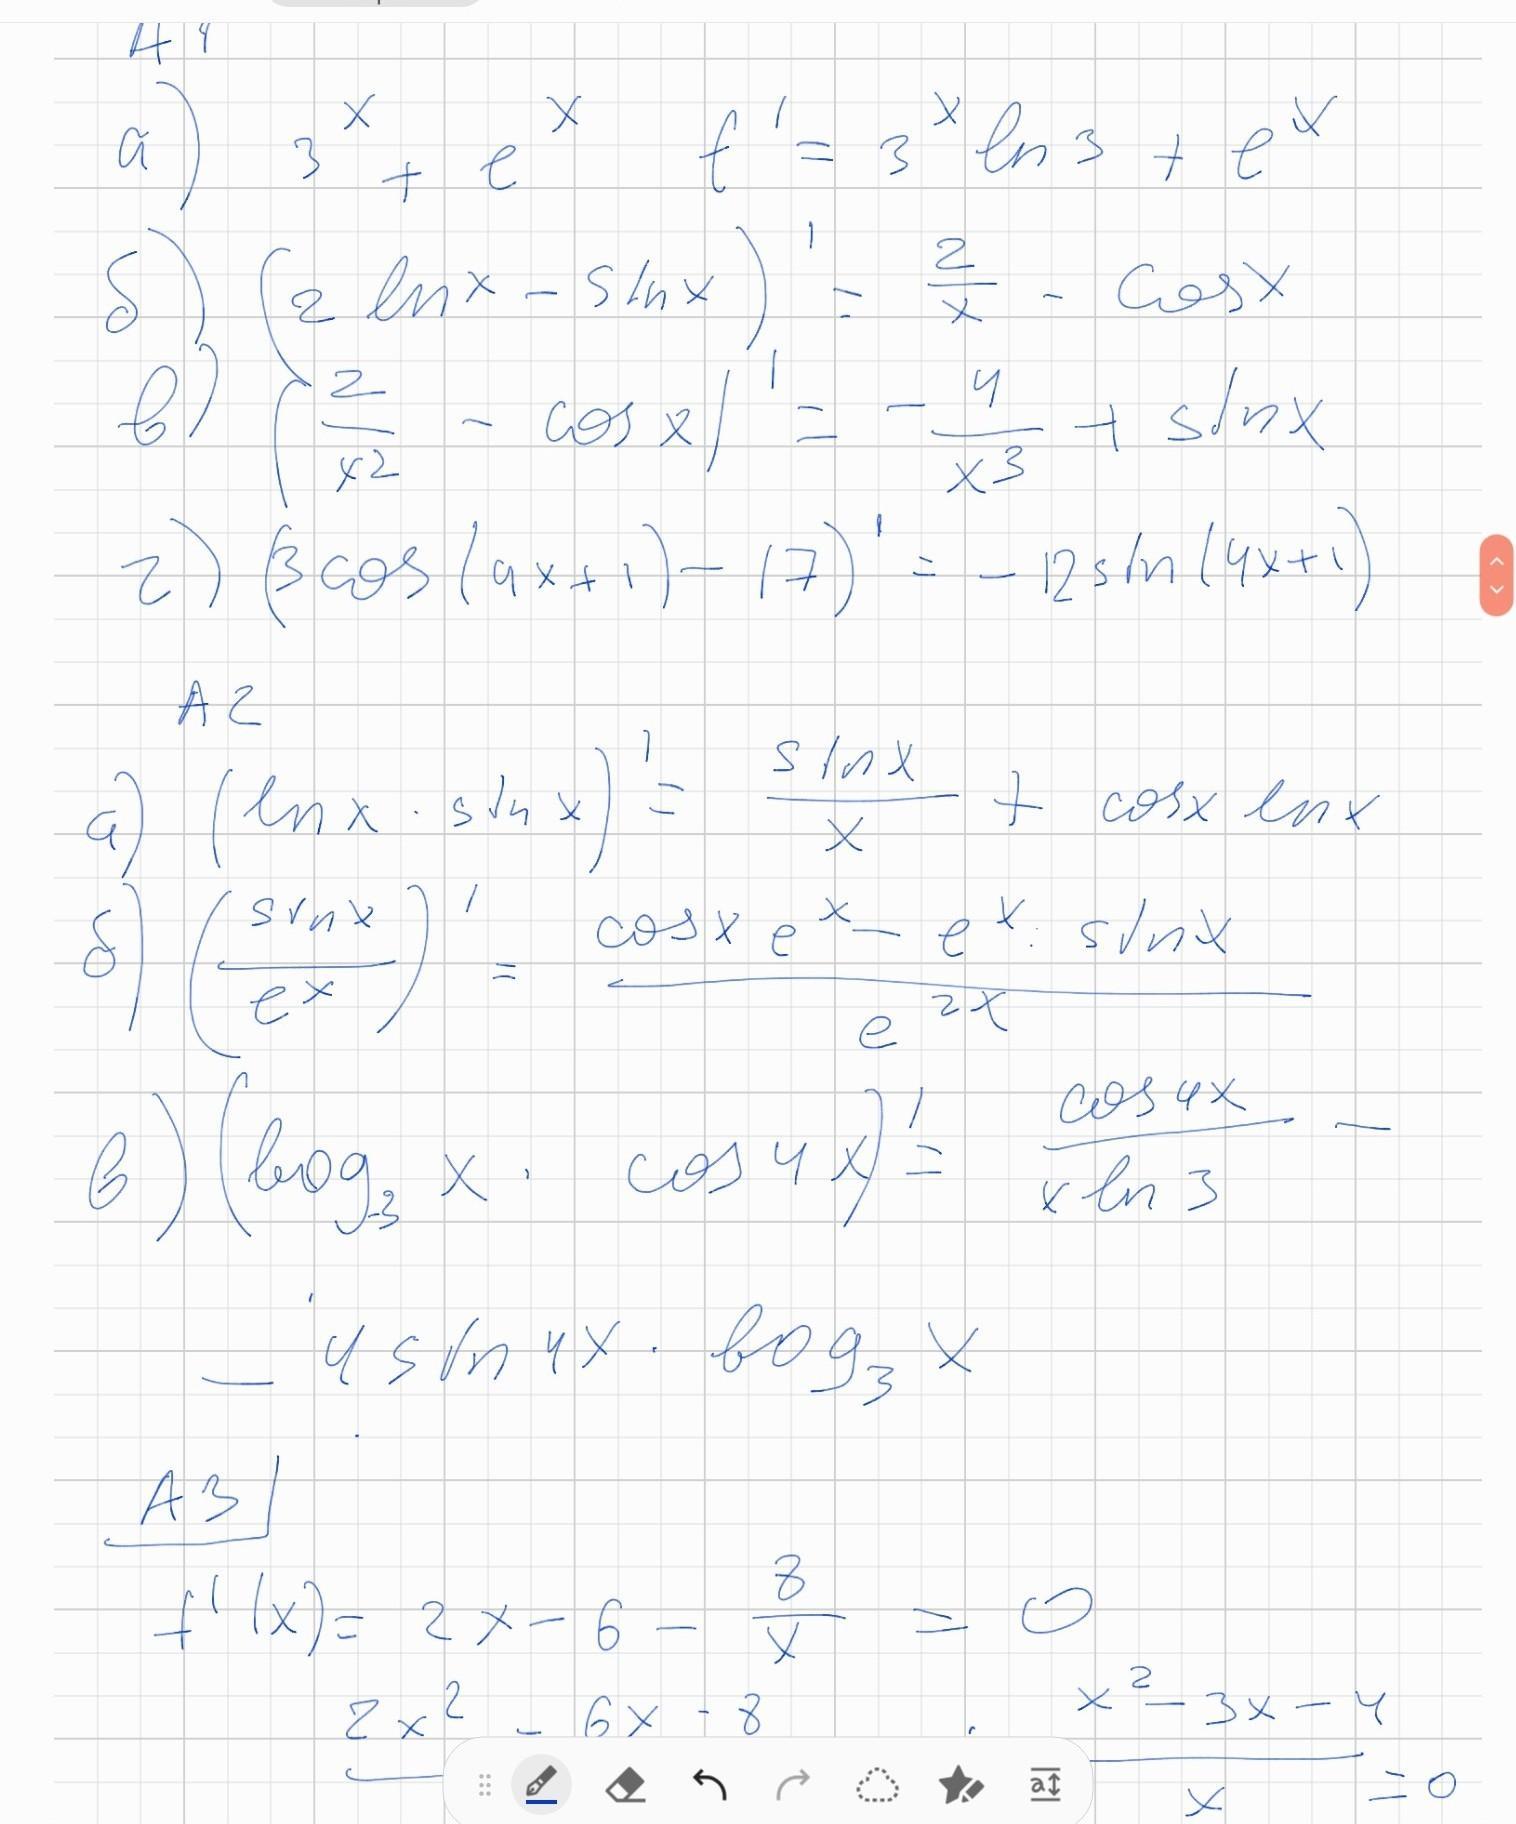 A1
а) 3^x + e^x f' = 3^x ln 3 + e^x
б) (2 ln x - sin x)' = 2/x - cos x
в) (2/x2 - cos x)' = - 4/x^3 + sin x
г) (3 cos (4x+1) - 17)' = - 12 sin (4x+1)
A2
а) (ln x · sin x)' = sin x/x + cos x ln x
б) (sin x/e^x)' = (cos x e^x - e^x · sin x)/e^2x
в) (log_3 x · cos 4x)' = cos 4x/(x ln 3) -
- 4 sin 4x · log_3 x
A3
f'(x) = 2x - 6 - 8/x = 0
2x^2 - 6x - 8 (x^2 - 3x - 4)/x = 0
a